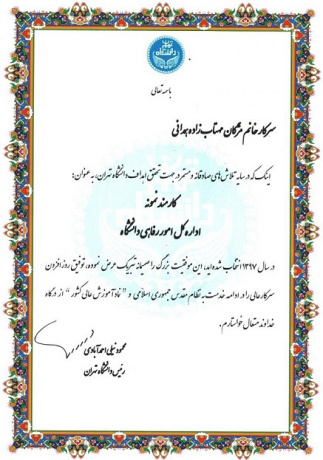 دانشگاه تهران
باسمه تعالی
سرکار خانم مژگان مهتاب‌زاده بهرانی
اینک که در سایه تلاش‌های صادقانه و مستمر در جهت تحقق اهداف دانشگاه تهران، به عنوان:
کارمند نمونه
اداره کل امور رفاهی دانشگاه
در سال ۱۳۹۷ انتخاب شده‌اید، این موفقیت بزرگ را صمیمانه تبریک عرض نموده، توفیق روزافزون
سرکار عالی را در ادامه خدمت به نظام مقدس جمهوری اسلامی و "نماد آموزش عالی کشور" از درگاه
خداوند متعال خواستارم.
محمود نیلی احمدآبادی
رئیس دانشگاه تهران